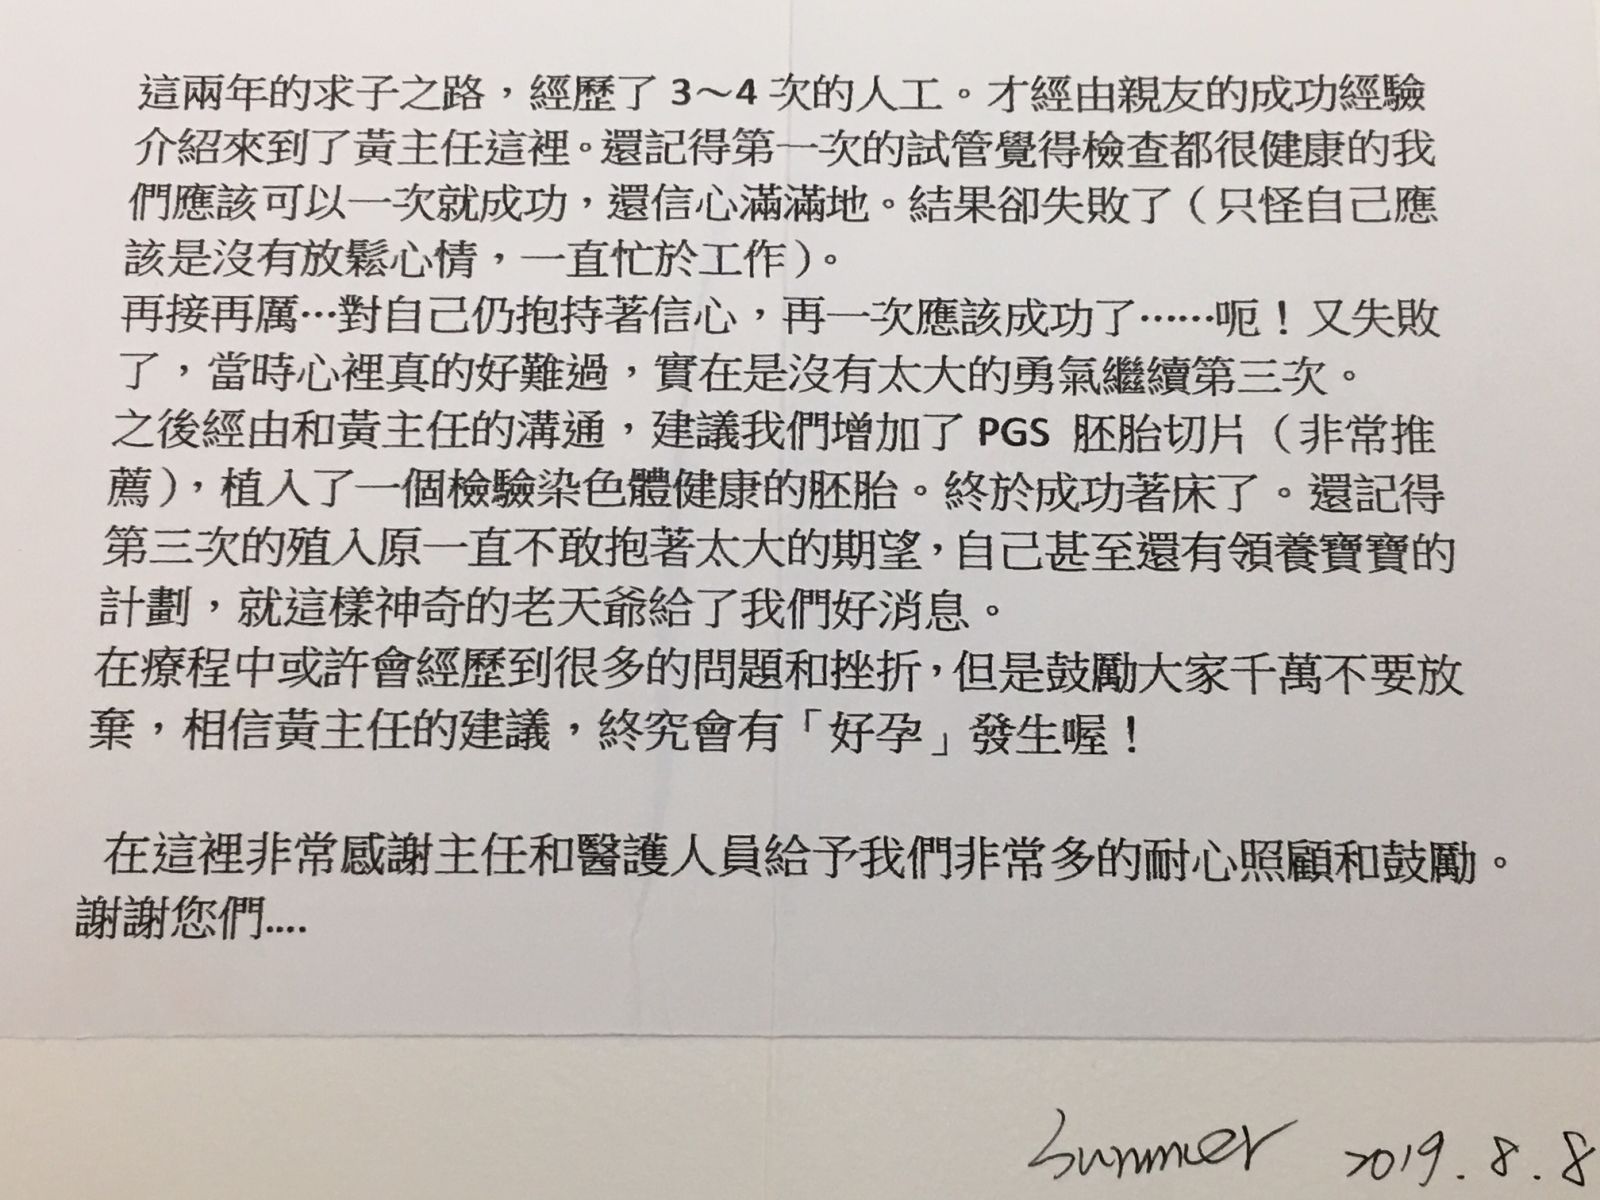 這兩年的求子之路，經歷了 3～4 次的人工。才經由親友的成功經驗
介紹來到了黃主任這裡。還記得第一次的試管覺得檢查都很健康的我
們應該可以一次就成功，還信心滿滿地。結果卻失敗了（只怪自己應
該是沒有放鬆心情，一直忙於工作）。
再接再厲…對自己仍抱持著信心，再一次應該成功了……呃！又失敗
了，當時心裡真的好難過，實在是沒有太大的勇氣繼續第三次。
之後經由和黃主任的溝通，建議我們增加了 PGS 胚胎切片（非常推
薦），植入了一個檢驗染色體健康的胚胎。終於成功著床了。還記得
第三次的殖入原一直不敢抱著太大的期望，自己甚至還有領養寶寶的
計劃，就這樣神奇的老天爺給了我們好消息。
在療程中或許會經歷到很多的問題和挫折，但是鼓勵大家千萬不要放
棄，相信黃主任的建議，終究會有「好孕」發生喔！
在這裡非常感謝主任和醫護人員給予我們非常多的耐心照顧和鼓勵。
謝謝您們....
Summer 2019.8.8